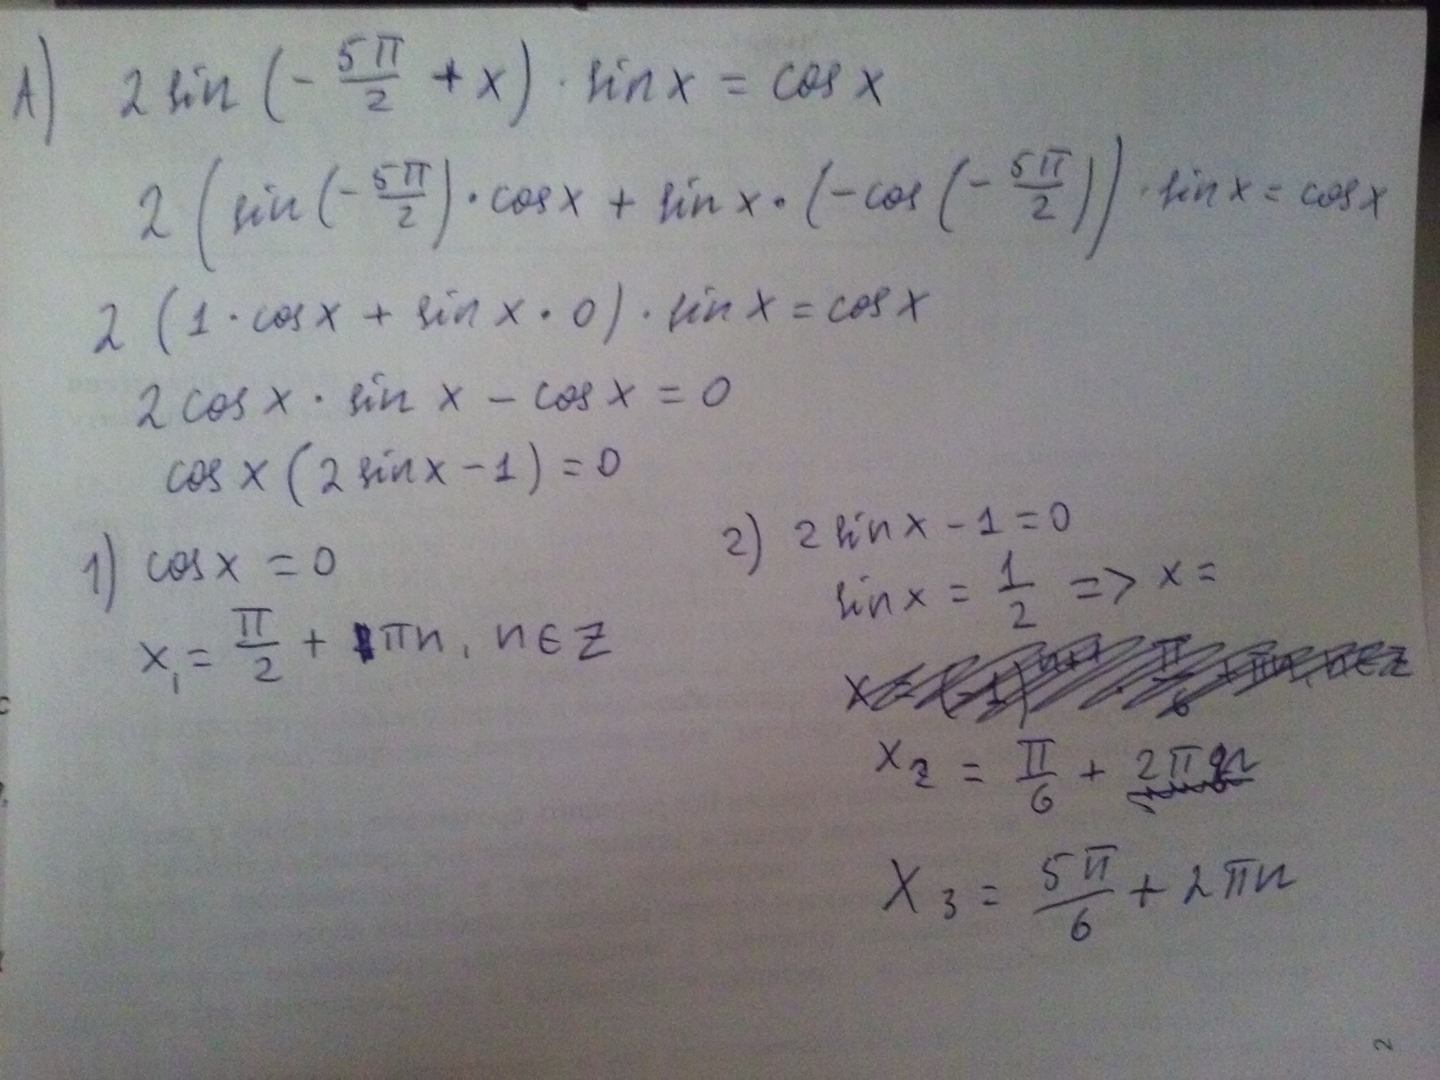 А) 2 sin (- 5π/2 + x) · sin x = cos x
2 (sin (- 5π/2) · cos x + sin x · (-cos (- 5π/2)) · sin x = cos x
2 (1 · cos x + sin x · 0) · sin x = cos x
2 cos x · sin x - cos x = 0
cos x (2 sin x - 1) = 0
1) cos x = 0
x₁ = π/2 + πn, n ∈ Z
2) 2 sin x - 1 = 0
sin x = 1/2 => x =
x₂ = π/6 + 2π
x₃ = 5π/6 + 2πn
2